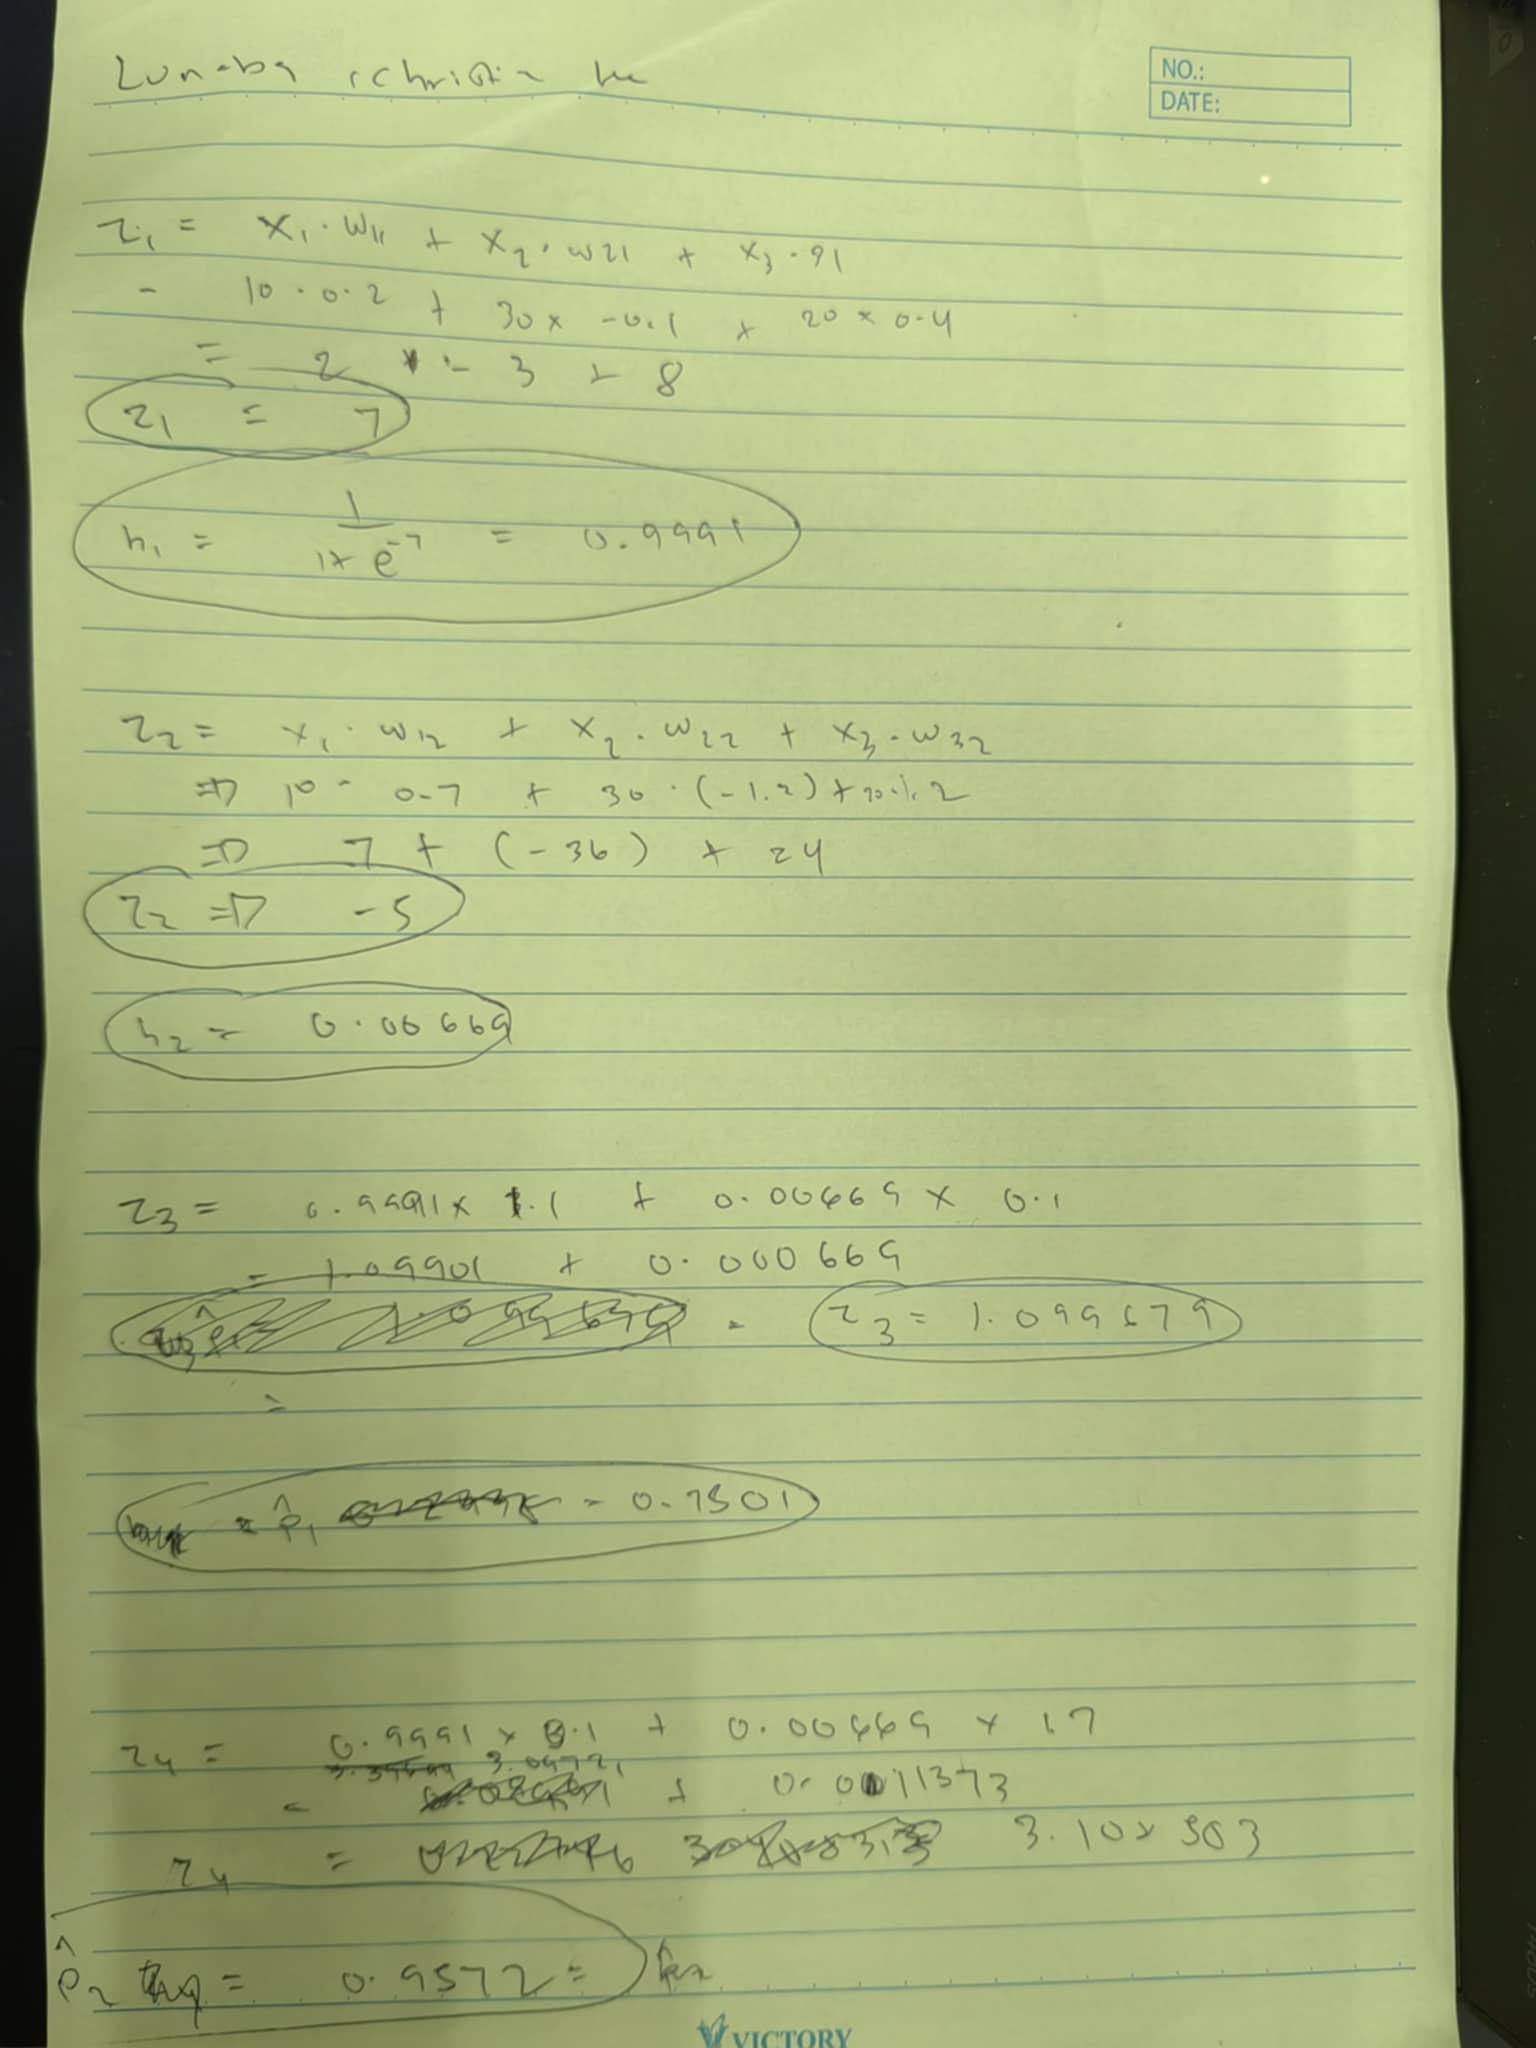 NO.:
DATE:
z1 = x1 · w11 + x2 · w21 + x3 · 91
= 10 · 0.2 + 30 x -0.1 + 20 x 0.4
= 2 - 3 + 8
z1 = 7
h1 = 1 / 1 + e^-7 = 0.9991
z2 = x1 · w12 + x2 · w22 + x3 · w32
=> 10 · 0.7 + 30 · (-1.2) + 20 · 1.2
=> 7 + (-36) + 24
z2 => -5
h2 = 0.00669
z3 = 0.9991 x 1.1 + 0.00669 x 0.1
= 1.09901 + 0.000669
z3 = 1.099679
=
= p̂1 = 0.7501
z4 = 0.9991 x 3.1 + 0.00669 x 1.7
3.09721
= + 0.011373
z4 =
p̂2 = 0.9572 =
VICTORY